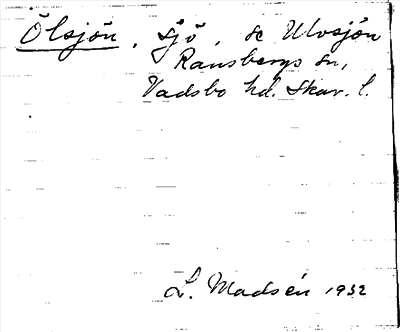 Ölsjön, sjö, se Ulvsjön
Ransbergs sn,
Vadsbo hd. Skar. l.
L. Madsén 1932